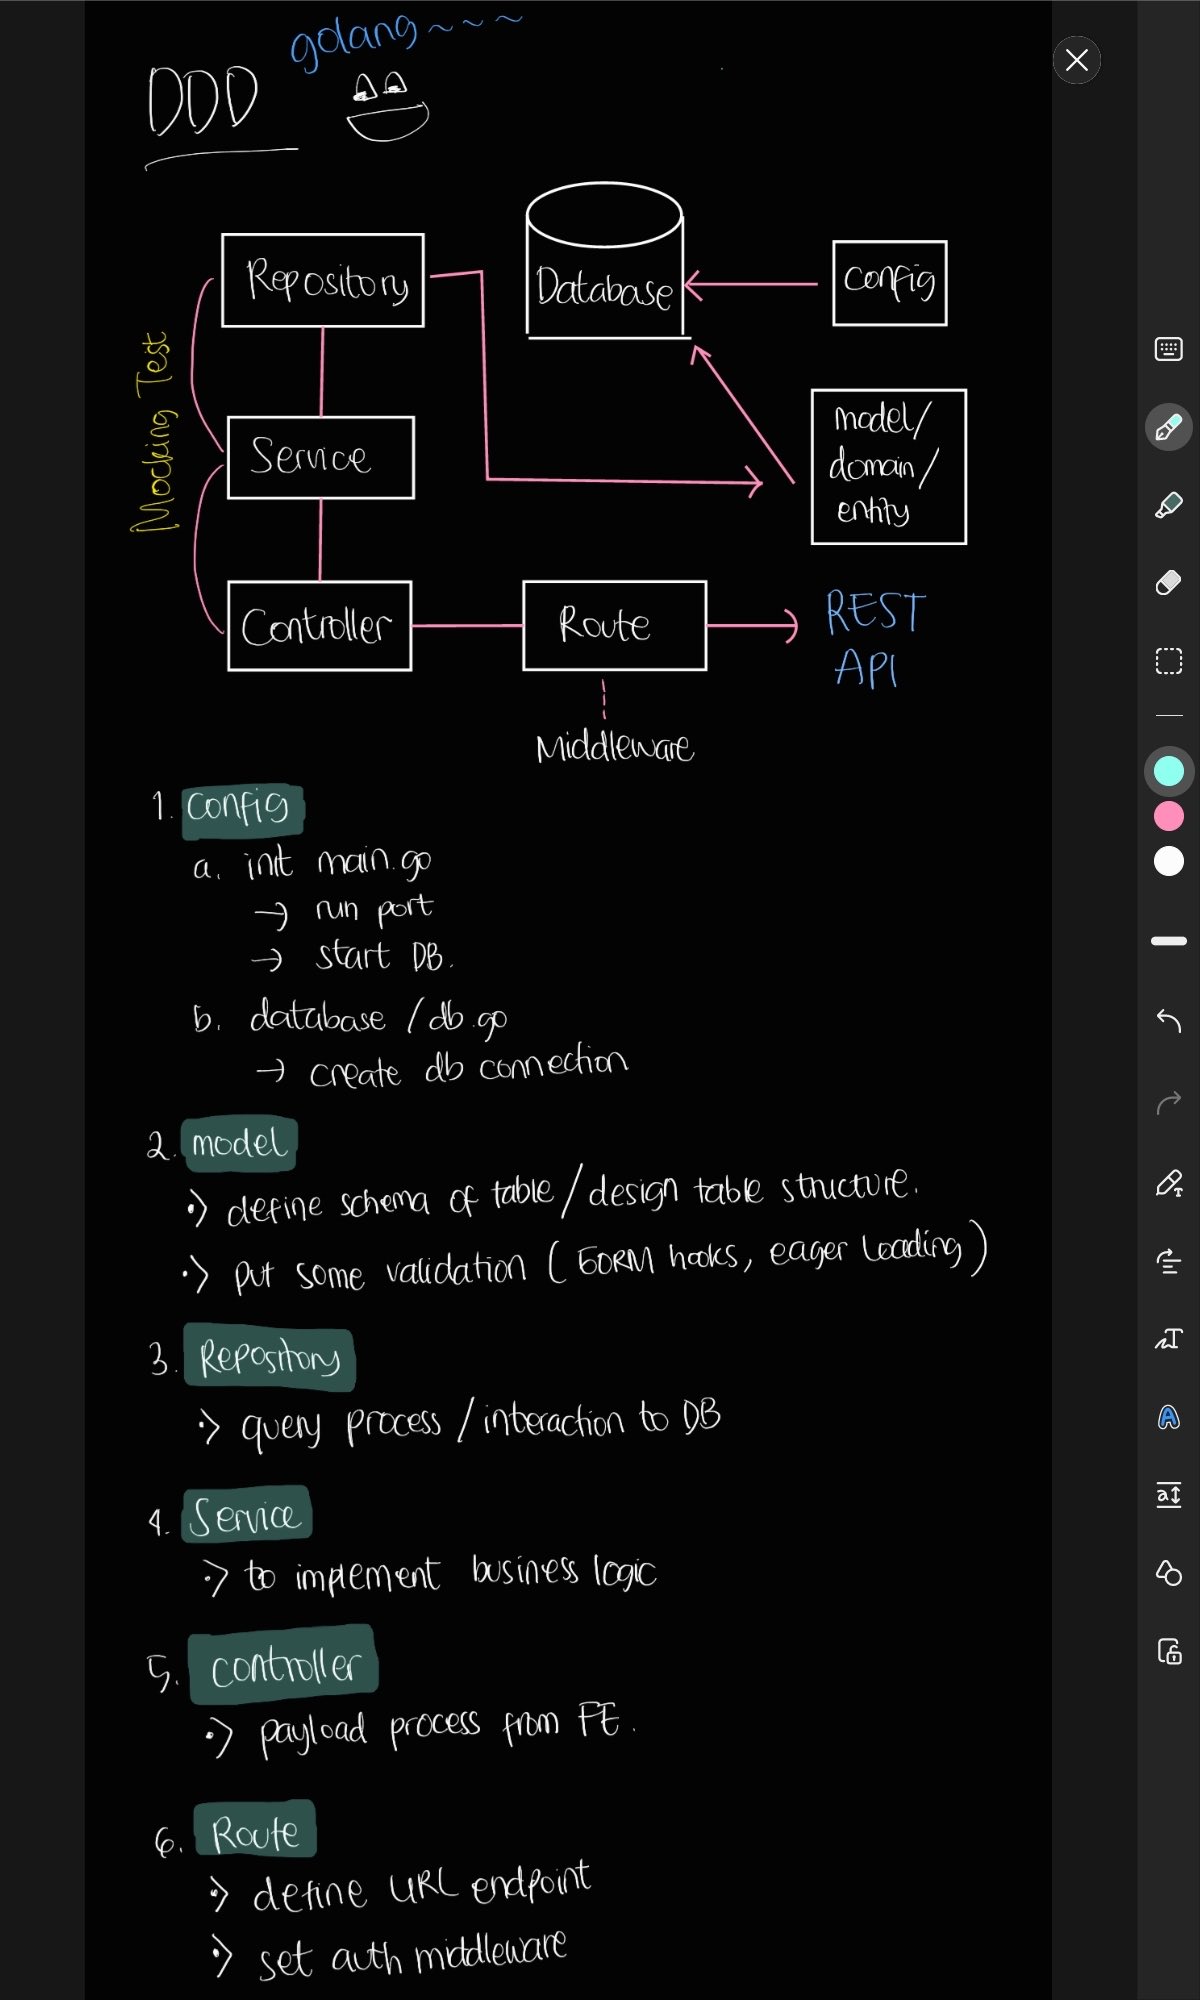 golang~~~
DDD
Repository
Database
config
Mocking Test
Service
model/
domain/
entity
Controller
Route
REST
API
Middleware
1. config
a. init main.go
→ run port
→ start DB.
b. database / db.go
→ create db connection
2. model
·> define schema of table / design table structure.
·> put some validation ( GORM hooks, eager loading )
3. Repository
·> query process / interaction to DB
4. Service
·> to implement business logic
5. controller
·> payload process from FE.
6. Route
·> define URL endpoint
·> set auth middleware